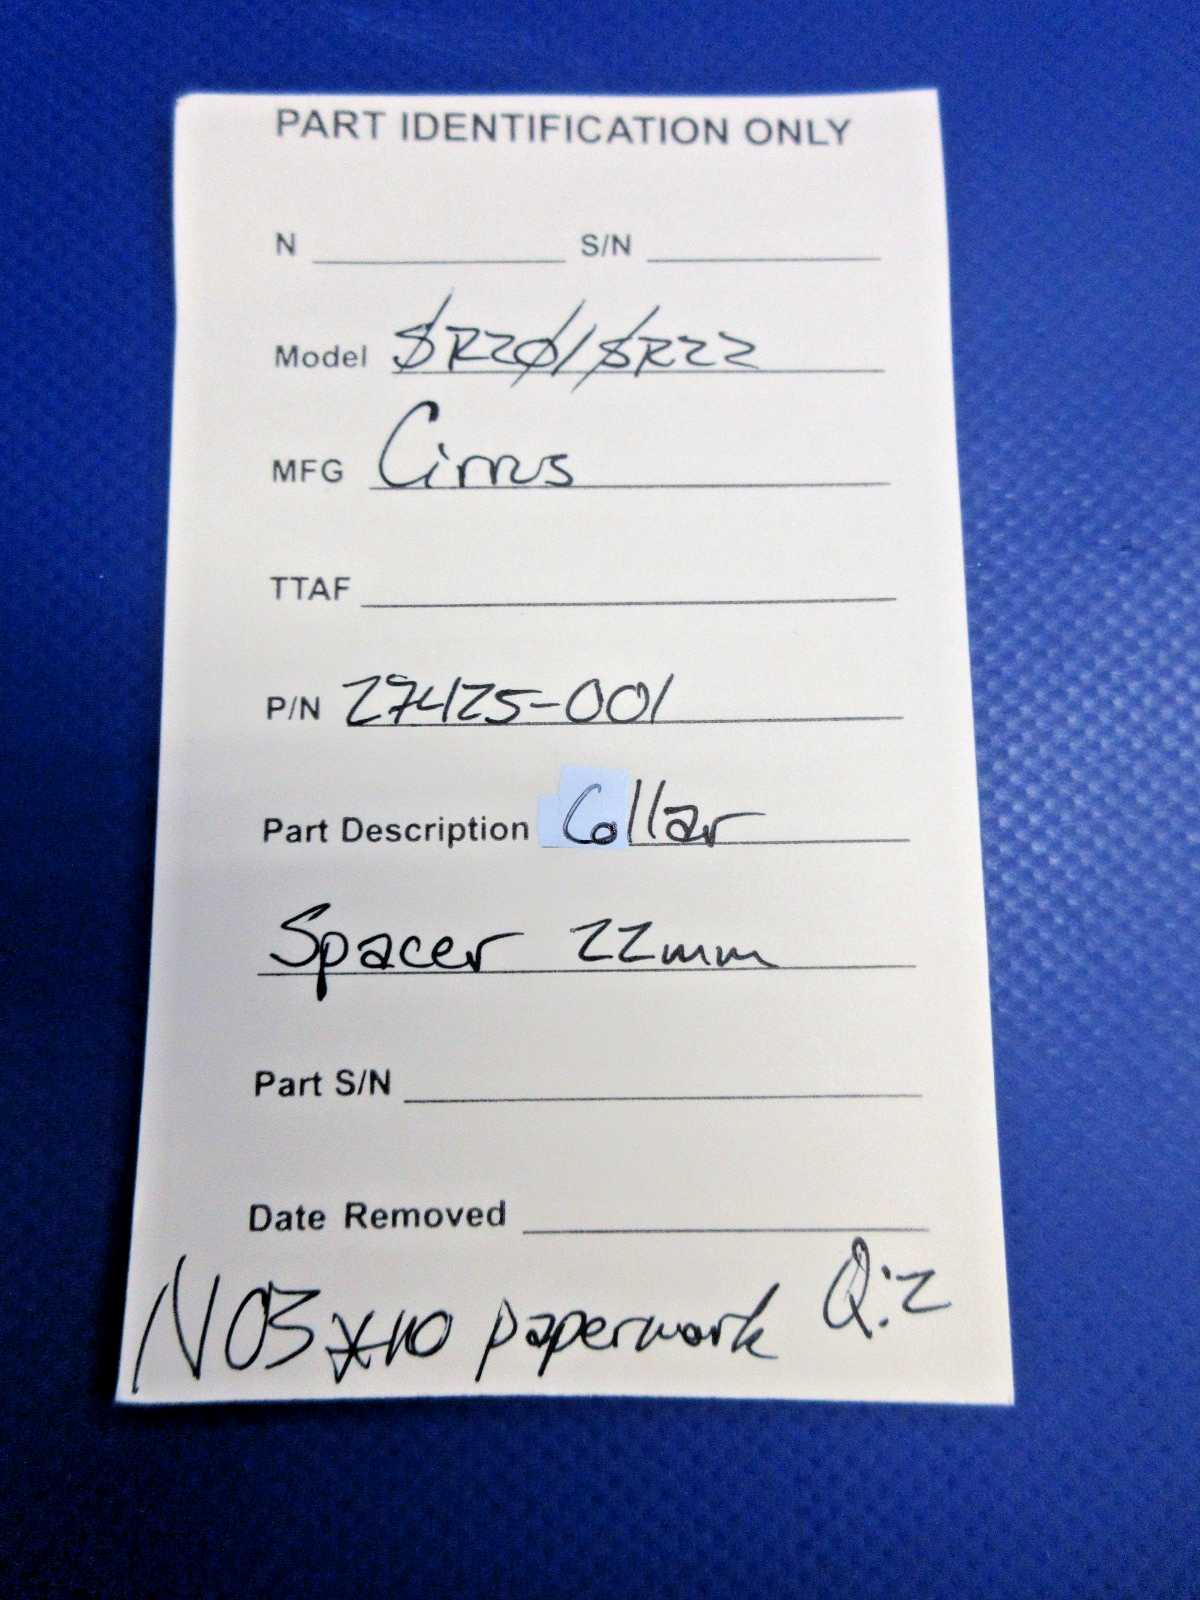 PART IDENTIFICATION ONLY
N S/N
Model SR20/SR22
MFG Cirrus
TTAF
P/N 27425-001
Part Description Collar
Spacer 22mm
Part S/N
Date Removed
NOS *no paperwork Q:2